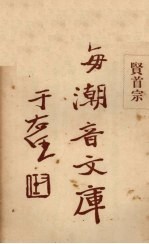 賢首宗
海潮音文庫
于右任